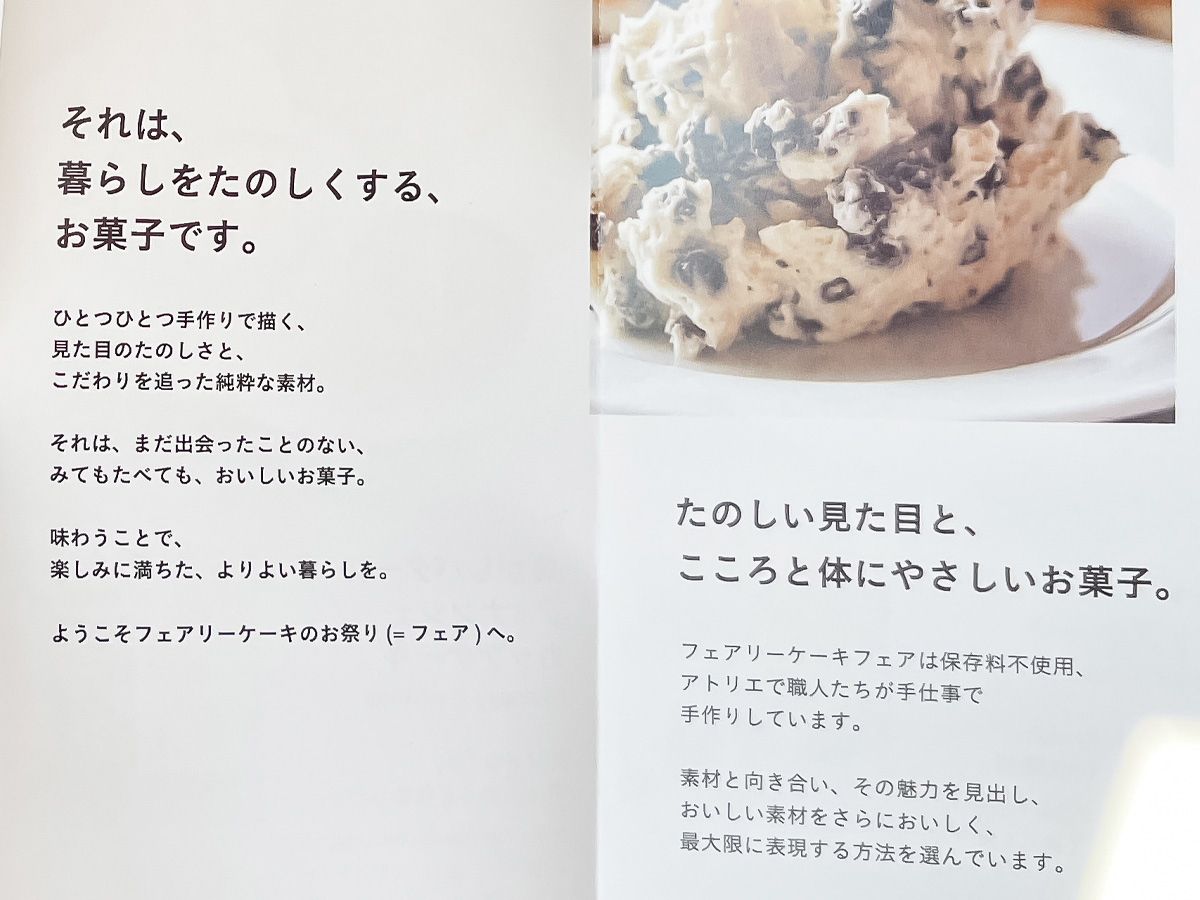 それは、
暮らしをたのしくする、
お菓子です。
ひとつひとつ手作りで描く、
見た目のたのしさと、
こだわりを追った純粋な素材。
それは、まだ出会ったことのない、
みてもたべても、おいしいお菓子。
味わうことで、
楽しみに満ちた、よりよい暮らしを。
ようこそフェアリーケーキのお祭り(=フェア)へ。
たのしい見た目と、
こころと体にやさしいお菓子。
フェアリーケーキフェアは保存料不使用、
アトリエで職人たちが手仕事で
手作りしています。
素材と向き合い、その魅力を見出し、
おいしい素材をさらにおいしく、
最大限に表現する方法を選んでいます。